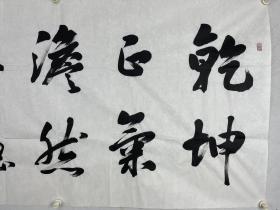 乾坤
正氣
澹然